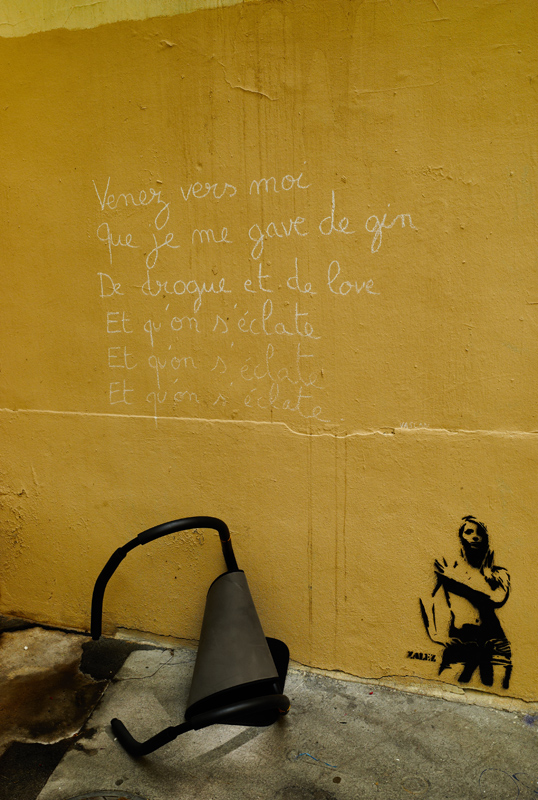 Venez vers moi
Que je me gave de gin
De drogue et de love
Et qu'on s'éclate
Et qu'on s'éclate
Et qu'on s'éclate
ZALEZ